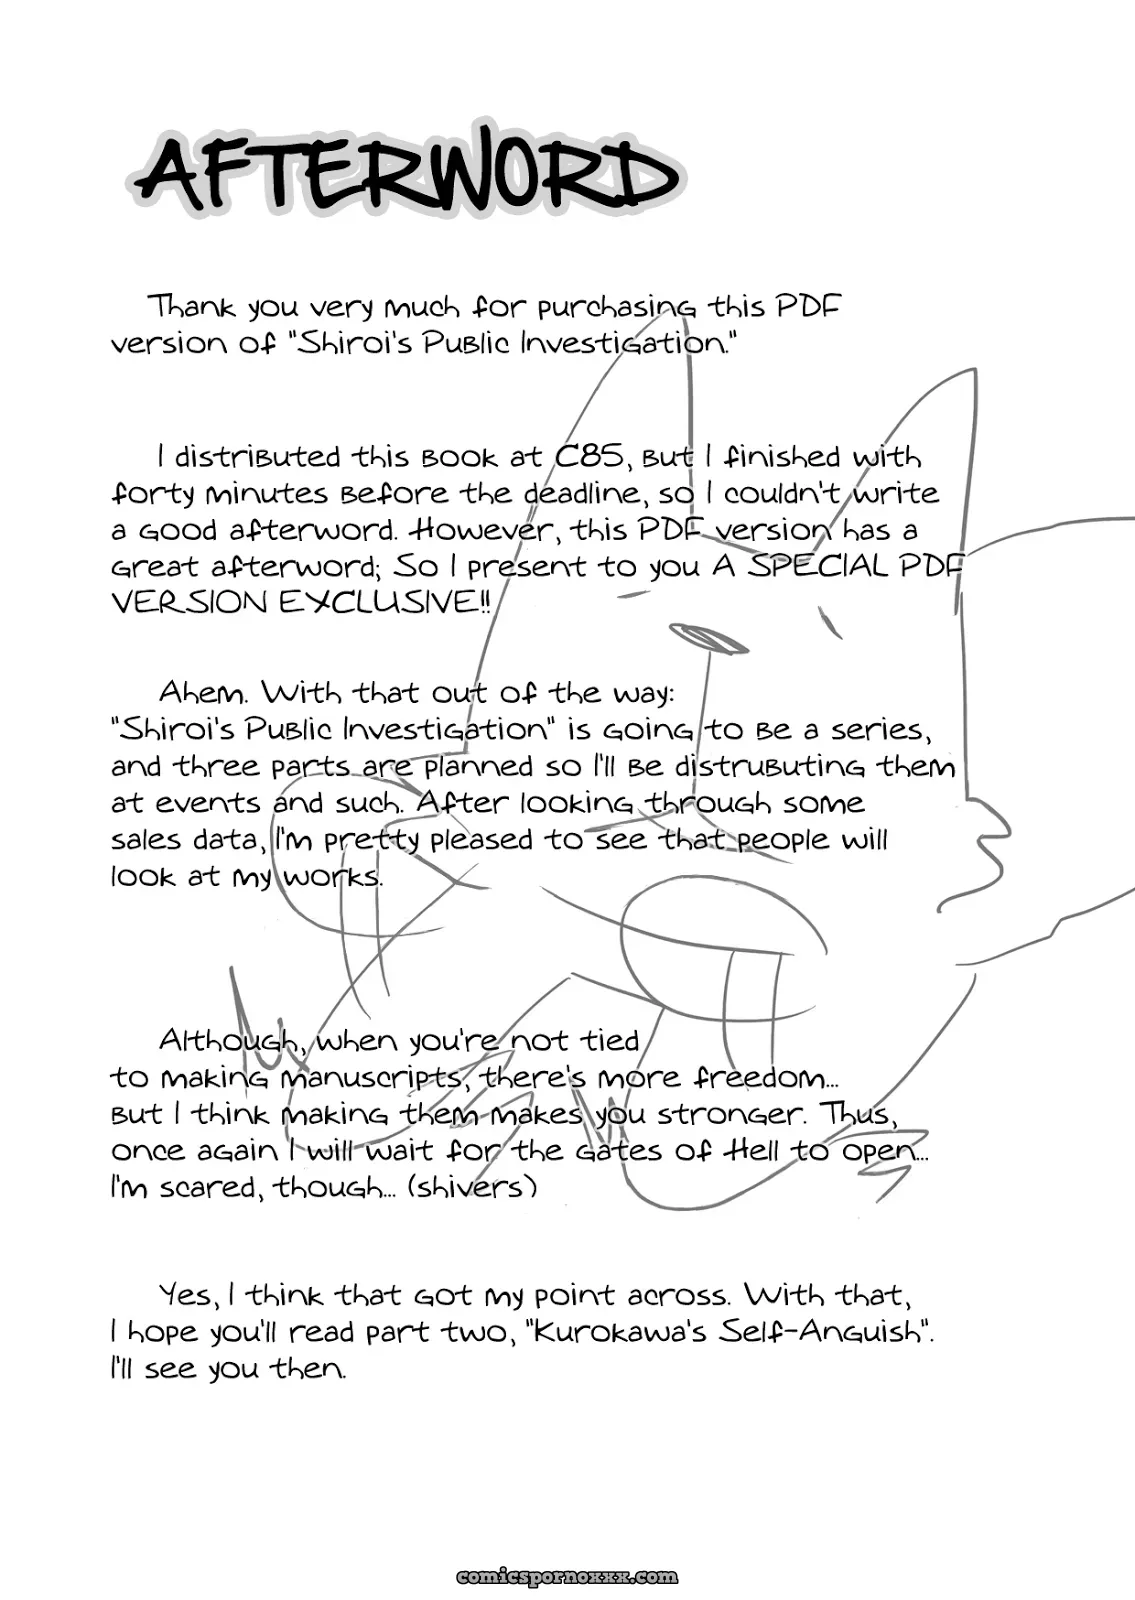 AFTERWORD
Thank you very much for purchasing this PDF
version of "Shiroi's Public Investigation."
I distributed this book at C85, but I finished with
forty minutes before the deadline, so I couldn't write
a good afterword. However, this PDF version has a
great afterword; So I present to you A SPECIAL PDF
VERSION EXCLUSIVE!!
Ahem. With that out of the way:
"Shiroi's Public Investigation" is going to be a series,
and three parts are planned so I'll be distrubuting them
at events and such. After looking through some
sales data, I'm pretty pleased to see that people will
look at my works.
Although, when you're not tied
to making manuscripts, there's more freedom...
But I think making them makes you stronger. Thus,
once again I will wait for the Gates of Hell to open...
I'm scared, though... (shivers)
Yes, I think that got my point across. With that,
I hope you'll read part two, "Kurokawa's Self-Anguish".
I'll see you then.
comicspornoxxx.com